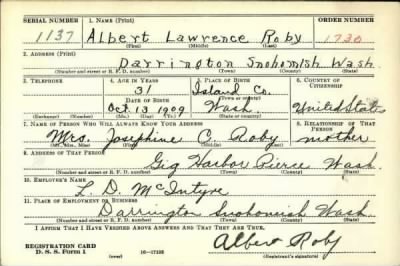 SERIAL NUMBER 1. NAME (Print) ORDER NUMBER
1137 Albert Lawrence Roby 1730
(First) (Middle) (Last)
2. ADDRESS (Print)
Darrington Snohomish Wash.
(Number and street or R. F. D. number) (Town) (County) (State)
3. TELEPHONE 4. AGE IN YEARS 5. PLACE OF BIRTH 6. COUNTRY OF CITIZENSHIP
31 Island Co.
DATE OF BIRTH (Town or county)
Oct. 13 1909 Wash United States
(Exchange) (Number) (Mo.) (Day) (Yr.) (State or country)
7. NAME OF PERSON WHO WILL ALWAYS KNOW YOUR ADDRESS 8. RELATIONSHIP OF THAT PERSON
Mrs. Josephine C. Roby mother
(Mr., Mrs., Miss) (First) (Middle) (Last)
9. ADDRESS OF THAT PERSON
Gig Harbor Pierce Wash.
(Number and street or R. F. D. number) (Town) (County) (State)
10. EMPLOYER'S NAME
L. D. McIntyre
11. PLACE OF EMPLOYMENT OR BUSINESS
Darrington Snohomish Wash
(Number and street or R. F. D. number) (Town) (County) (State)
I AFFIRM THAT I HAVE VERIFIED ABOVE ANSWERS AND THAT THEY ARE TRUE.
REGISTRATION CARD
D. S. S. Form 1 (over) 16-17105 Albert Roby
(Registrant's signature)